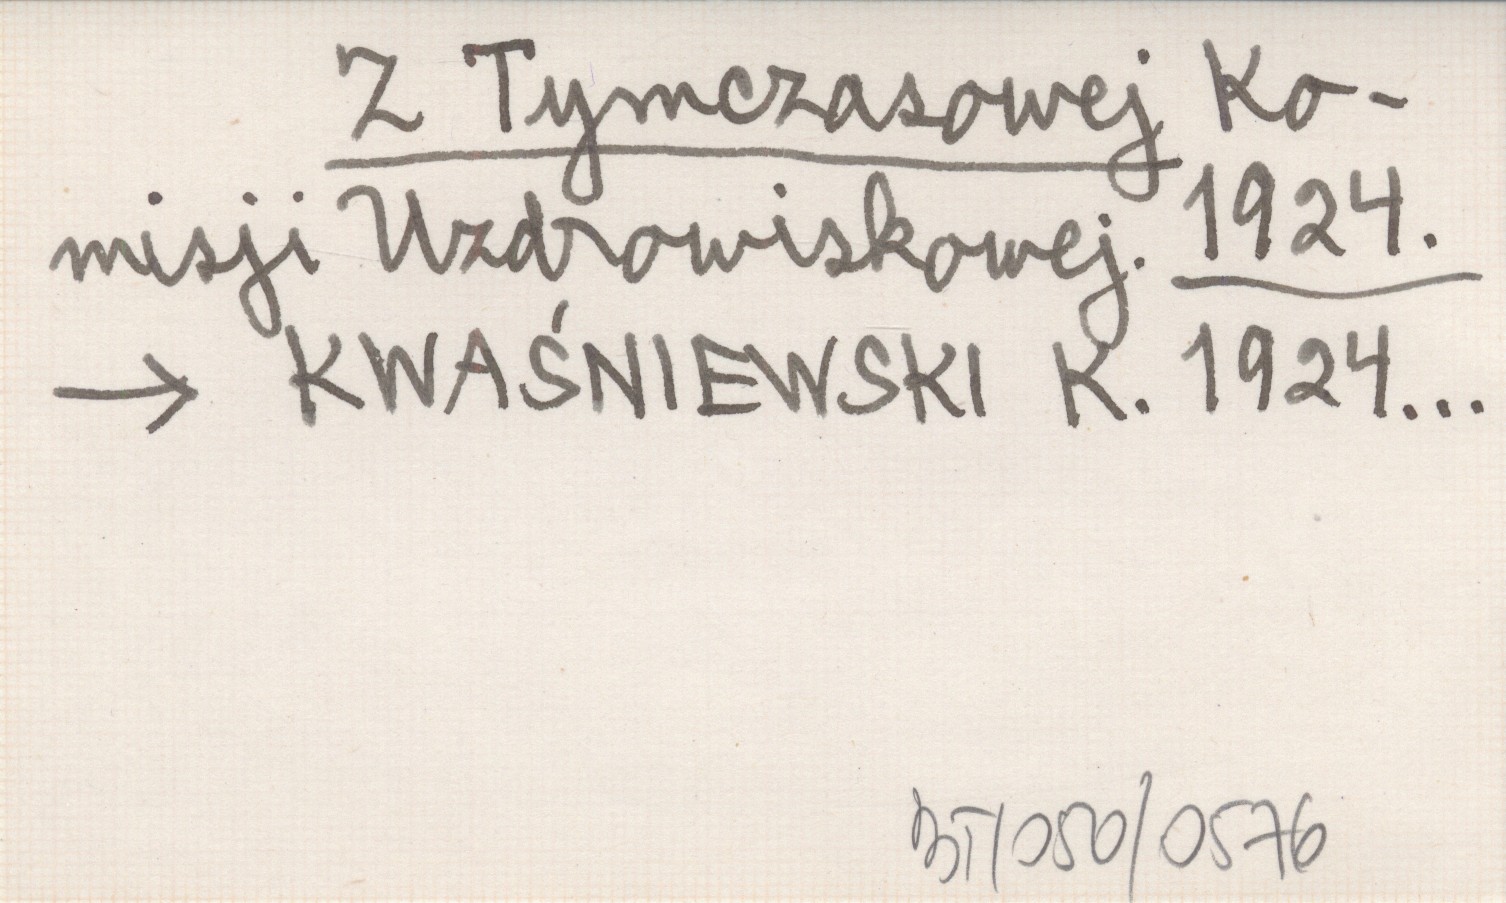 Z Tymczasowej Ko-
misji Uzdrowiskowej. 1924.
→ KWAŚNIEWSKI K. 1924...
BT/050/0576